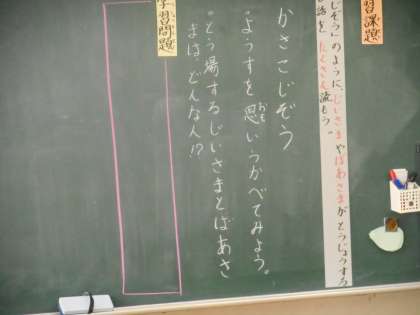 習課題
じぞう」のように、じいさまやばあさまがとうじょうする
話を、たくさん流もう。
かさこじぞう
“ようすを思いうかべてみよう。
おも
“とう場するじいさまとばあさ
まは、どんな人!?
学習問題